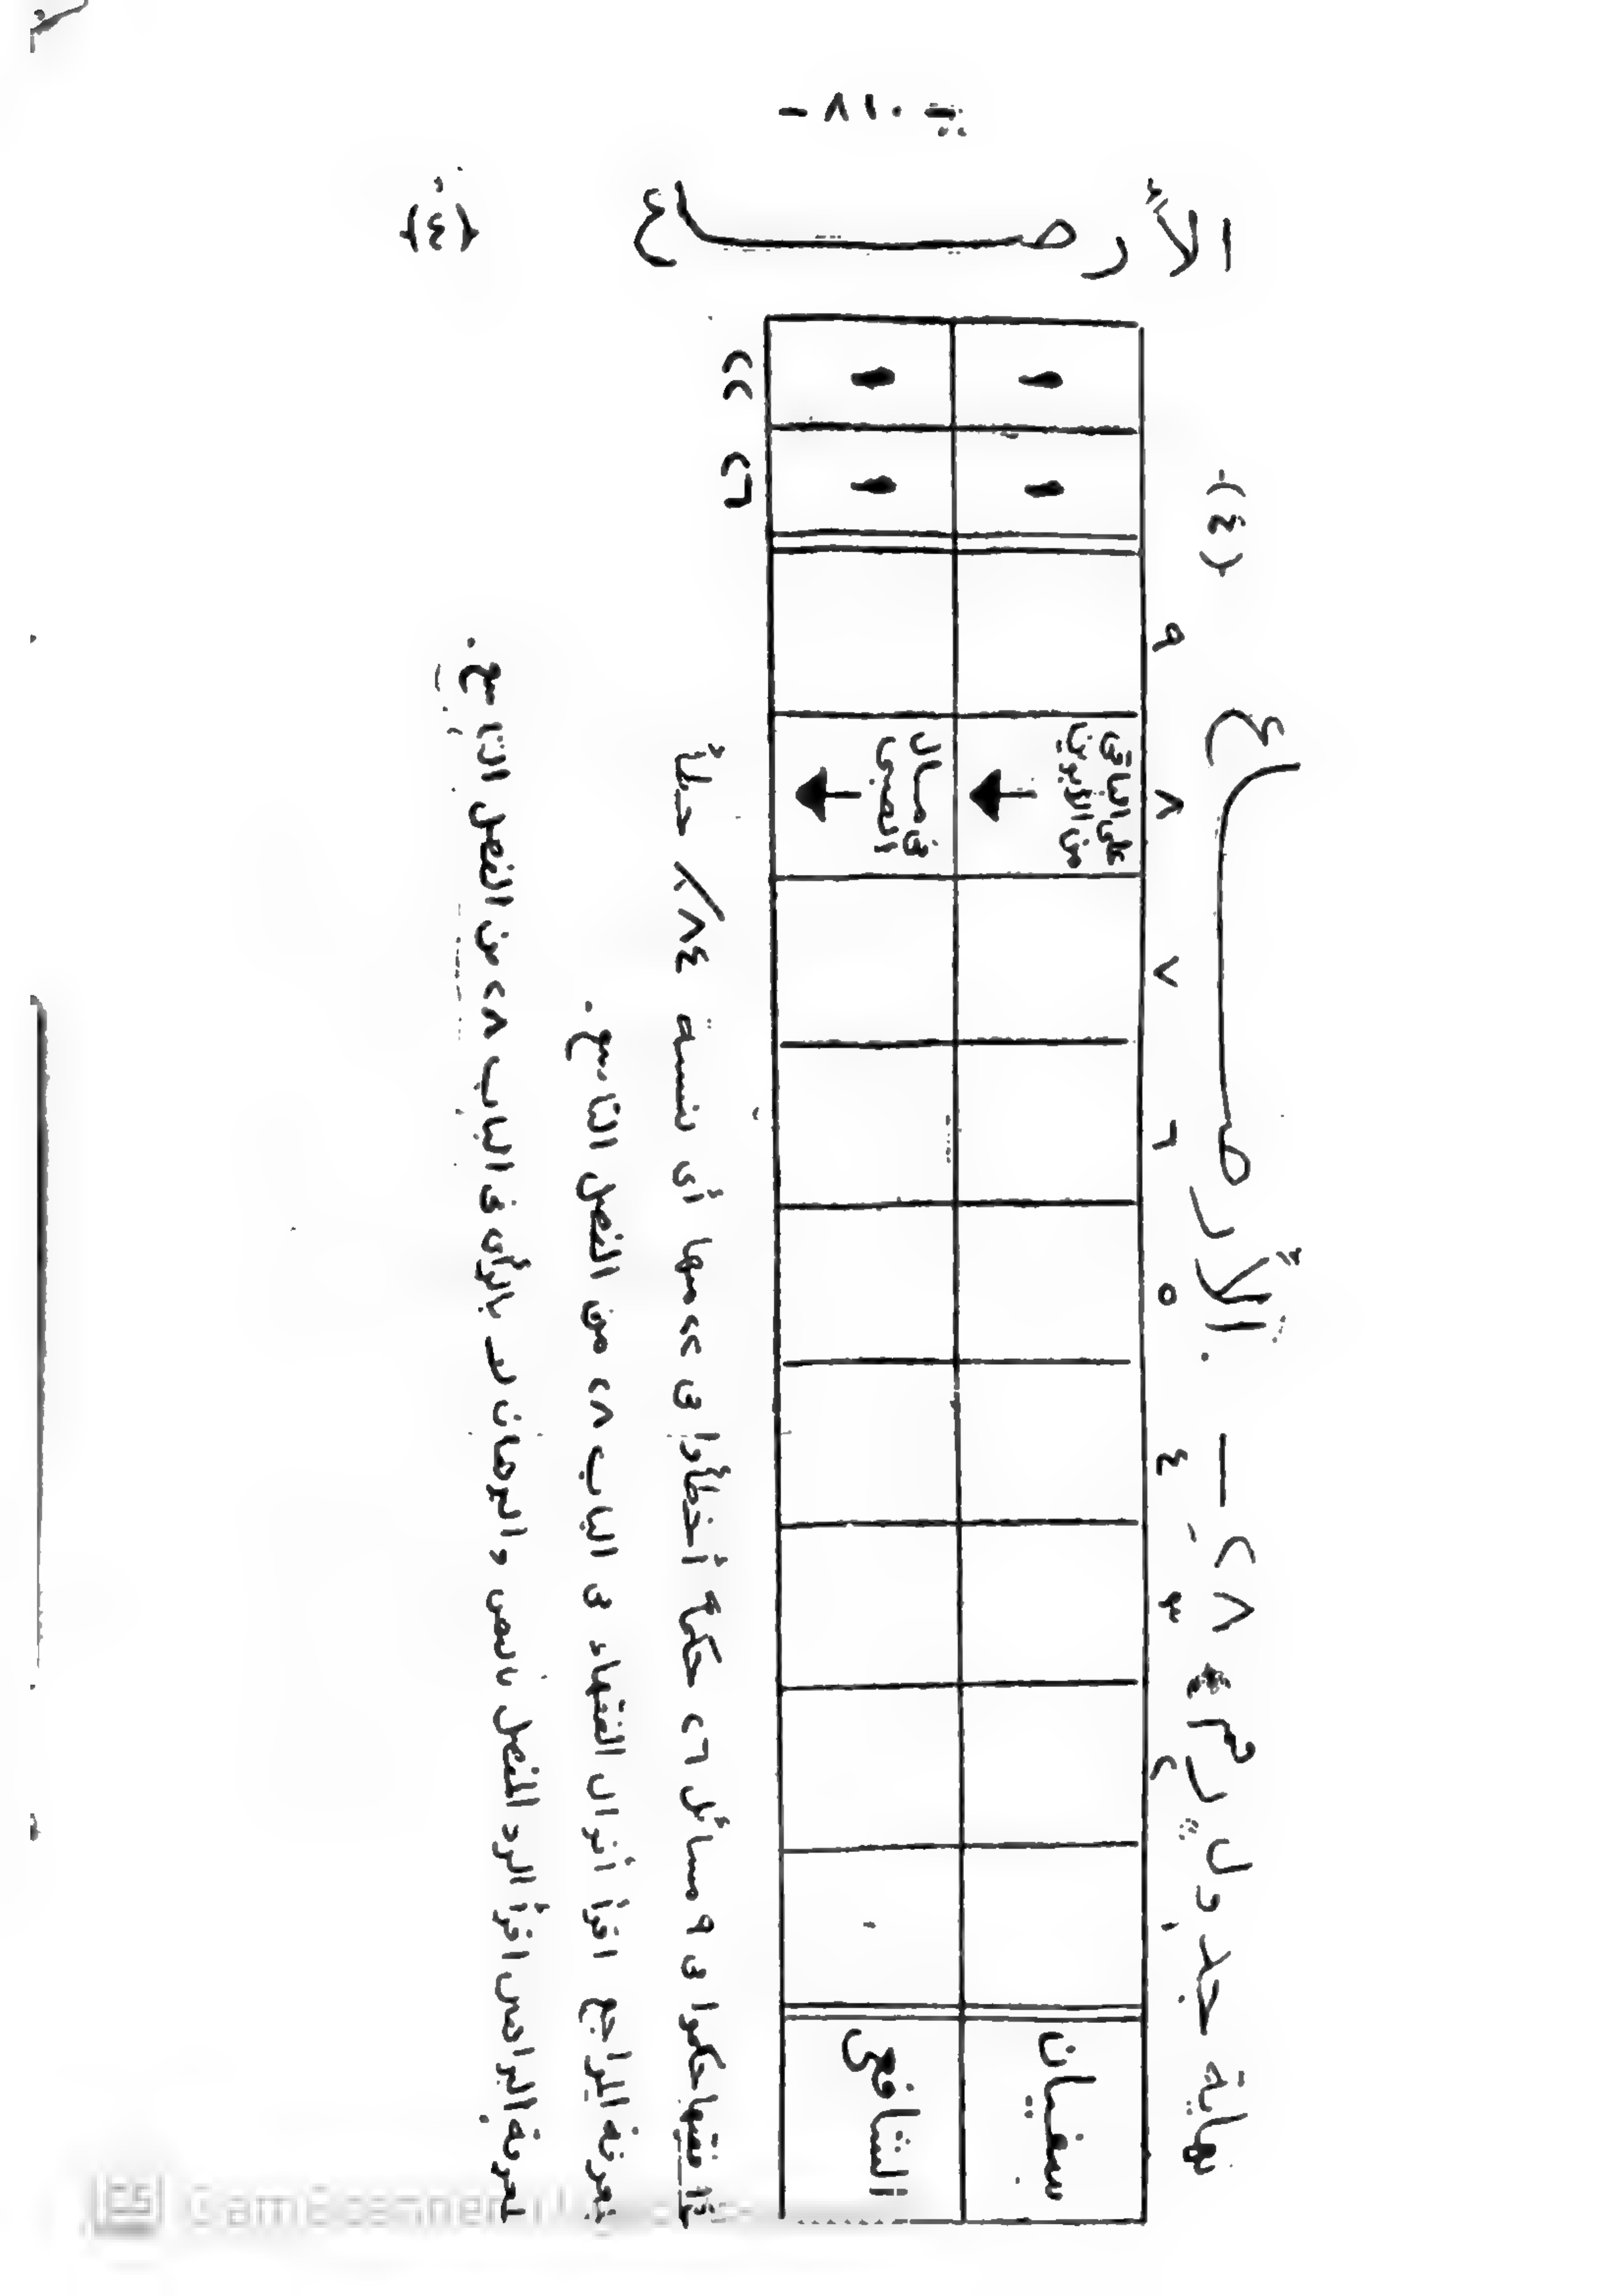 - ٨١٠ -
الأرضاع (٤)
نهاية جدول رقم ٢٨ — الأرضاع (٤)
١ ٢ ٣ ٤ ٥ ٦ ٧ ٨ ٩
سفيان على الباقى من الأبوين ١ ١
الشافعى فى مال الصبى ١ ١
٢٦ ٢٢
فقيها حكموا فى ٩ مسائل ٢٦ حكما أخطأوا فى ٢٢ منها أى نسبة ٨٤٪ خطأ
لمعرفة المراجع اقرأ أقوال الفقهاء فى الباب ٢٨ من الفصل التاسع.
لمعرفة البراهين اقرأ الرد المفصل بالنص والبرهان لا بالرأى فى الباب ٢٨ من الفصل التاسع.
CamScanner